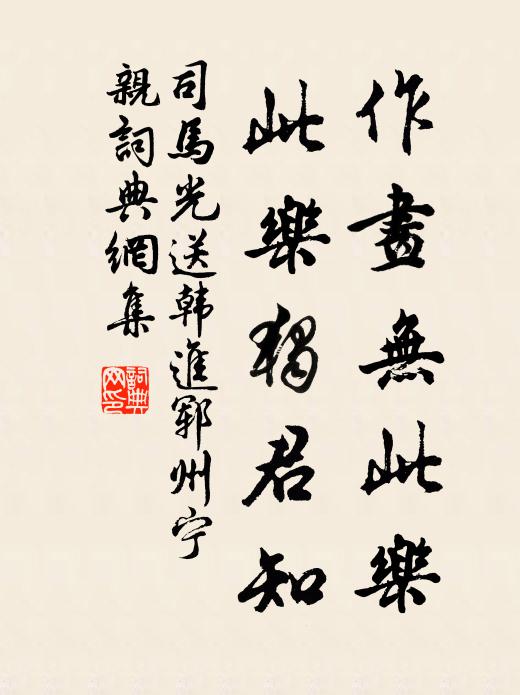 作畫無此樂
此樂獨君知
司馬光送韩進郓州宁
親詞典網集
詞典
网印